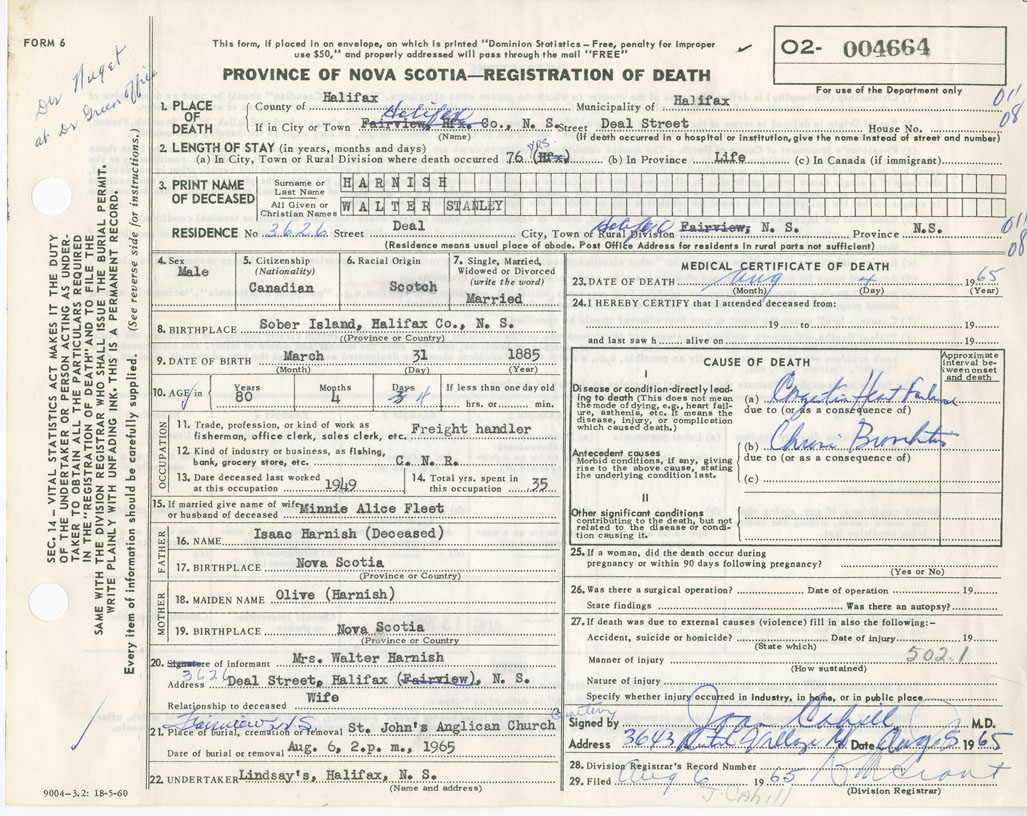 FORM 6
Dr Nuget
at Dr Green office
This form, if placed in an envelope, on which is printed "Dominion Statistics – Free, penalty for improper
use $50," and properly addressed will pass through the mail "FREE"
✓
O2- 004664
PROVINCE OF NOVA SCOTIA—REGISTRATION OF DEATH
For use of the Department only
011
08
1. PLACE OF DEATH
County of Halifax Municipality of Halifax
If in City or Town Fairview, Hfx. Co., N. S. Halifax Street Deal Street House No.
(Name) (If death occurred in a hospital or institution, give the name instead of street and number)
2. LENGTH OF STAY (in years, months and days)
(a) In City, Town or Rural Division where death occurred 76 yrs. (Hfx) (b) In Province Life (c) In Canada (if immigrant)
3. PRINT NAME OF DECEASED
Surname or Last Name HARNISH
All Given or Christian Names WALTER STANLEY
RESIDENCE No 3626 Street Deal City, Town or Rural Division Halifax Fairview, N. S. Province N.S.
(Residence means usual place of abode. Post Office Address for residents in rural parts not sufficient)
011
08
SEC. 14 – VITAL STATISTICS ACT MAKES IT THE DUTY
OF THE UNDERTAKER OR PERSON ACTING AS UNDER-
TAKER TO OBTAIN ALL THE PARTICULARS REQUIRED
IN THE "REGISTRATION OF DEATH" AND TO FILE THE
SAME WITH THE DIVISION REGISTRAR WHO SHALL ISSUE THE BURIAL PERMIT.
WRITE PLAINLY WITH UNFADING INK - THIS IS A PERMANENT RECORD.
Every item of information should be carefully supplied. (See reverse side for instructions.)
4. Sex
Male
5. Citizenship
(Nationality)
Canadian
6. Racial Origin
Scotch
7. Single, Married,
Widowed or Divorced
(write the word)
Married
8. BIRTHPLACE Sober Island, Halifax Co., N. S.
((Province or Country)
9. DATE OF BIRTH March 31 1885
(Month) (Day) (Year)
10. AGE in
Years 80
Months 4
Days 3 4
If less than one day old
hrs. or min.
OCCUPATION
11. Trade, profession, or kind of work as
fisherman, office clerk, sales clerk, etc. Freight handler
12. Kind of industry or business, as fishing,
bank, grocery store, etc. C. N. R.
13. Date deceased last worked
at this occupation 1949
14. Total yrs. spent in
this occupation 35
15. If married give name of wife
or husband of deceased Minnie Alice Fleet
FATHER
16. NAME Isaac Harnish (Deceased)
17. BIRTHPLACE Nova Scotia
(Province or Country)
MOTHER
18. MAIDEN NAME Olive (Harnish)
19. BIRTHPLACE Nova Scotia
(Province or Country
20. Signature of informant Mrs. Walter Harnish
3626
Address Deal Street, Halifax (Fairview), N. S.
Relationship to deceased Wife
Fairview N S
21. Place of burial, cremation or removal St. John's Anglican Church Cemetery
Date of burial or removal Aug. 6, 2.p. m., 1965
22. UNDERTAKER Lindsay's, Halifax, N. S.
(Name and address)
9004-3.2: 18-5-60
MEDICAL CERTIFICATE OF DEATH
23. DATE OF DEATH Aug 4 1965
(Month) (Day) (Year)
24. I HEREBY CERTIFY that I attended deceased from:
19 to 19
and last saw h alive on 19
CAUSE OF DEATH
Approximate
interval be-
tween onset
and death
I
Disease or condition directly lead-
ing to death (This does not mean
the mode of dying, e.g., heart fail-
ure, asthenia, etc. It means the
disease, injury, or complication
which caused death.)
(a) Congestive Heart Failure
due to (or as a consequence of)
Antecedent causes
Morbid conditions, if any, giving
rise to the above cause, stating
the underlying condition last.
(b) Chronic Bronchitis
due to (or as a consequence of)
(c)
II
Other significant conditions
contributing to the death, but not
related to the disease or condi-
tion causing it.
25. If a woman, did the death occur during
pregnancy or within 90 days following pregnancy?
(Yes or No)
26. Was there a surgical operation? Date of operation 19
State findings Was there an autopsy?
27. If death was due to external causes (violence) fill in also the following:-
Accident, suicide or homicide? Date of injury 19
(State which)
502.1
Manner of injury
(How sustained)
Nature of injury
Specify whether injury occurred in industry, in home, or in public place
Signed by Joan Cahill M.D.
Address 3643 Dutch Village Rd Date Aug 5 1965
28. Division Registrar's Record Number
29. Filed Aug 6 1965
(Division Registrar)
J. Cahill